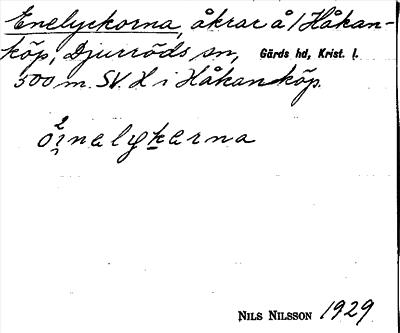 Enelyckorna, åkrar å 1 Håkan-
köp, Djurröds sn, Gärds hd, Krist. l.
500 m. SV. H i Håkanköp.
NILS NILSSON 1929